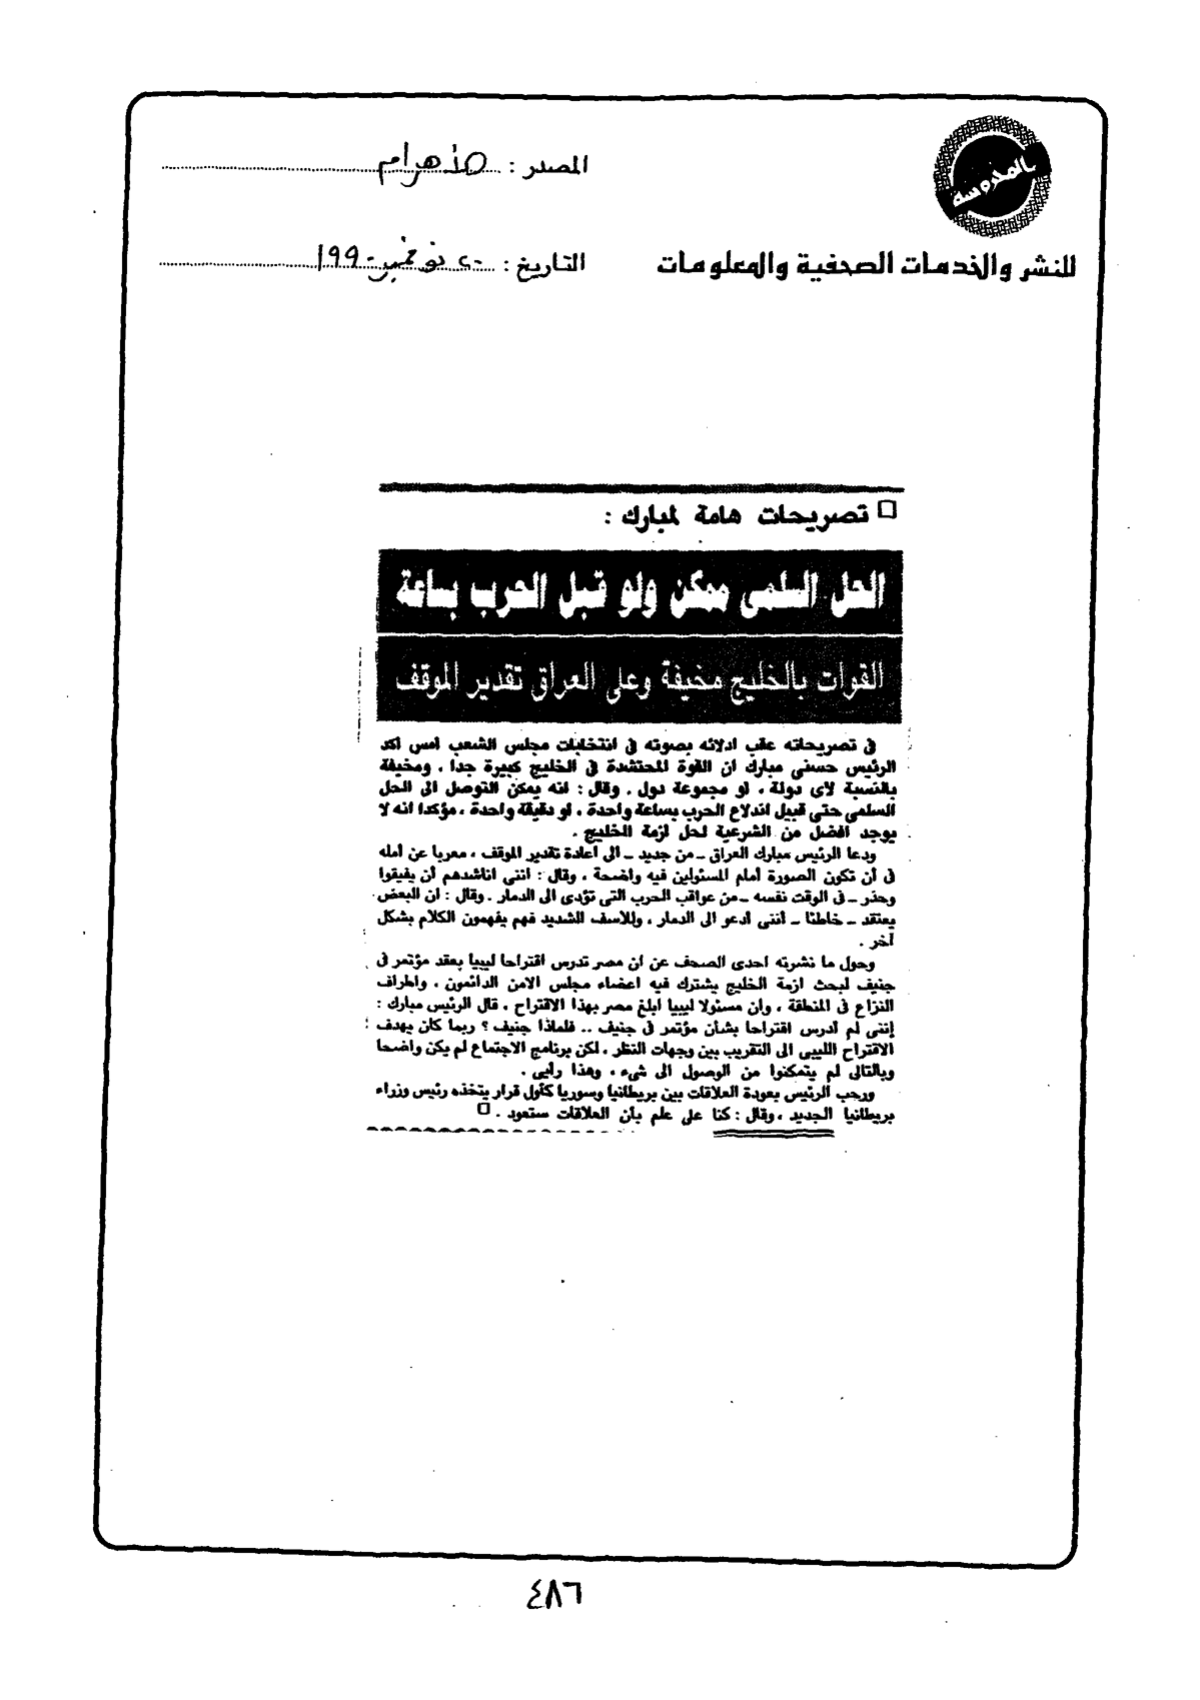 بالمحروسة
المصدر : الأهرام
للنشر والخدمات الصحفية والمعلومات
التاريخ : ٢٠ نوفمبر ١٩٩٠
تصريحات هامة لمبارك :
الحل السلمى ممكن ولو قبل الحرب بساعة
القوات بالخليج مخيفة وعلى العراق تقدير الموقف
فى تصريحاته عقب ادلائه بصوته فى انتخابات مجلس الشعب أمس اكد
الرئيس حسنى مبارك ان القوة المحتشدة فى الخليج كبيرة جدا ، ومخيفة
بالنسبة لاى دولة ، او مجموعة دول . وقال : انه يمكن التوصل الى الحل
السلمى حتى قبيل اندلاع الحرب بساعة واحدة ، او دقيقة واحدة ، مؤكدا انه لا
يوجد افضل من الشرعية لحل ازمة الخليج .
ودعا الرئيس مبارك العراق ـ من جديد ـ الى اعادة تقدير الموقف ، معربا عن أمله
فى أن تكون الصورة أمام المسئولين فيه واضحة ، وقال : اننى اناشدهم أن يفيقوا
وحذر ـ فى الوقت نفسه ـ من عواقب الحرب التى تؤدى الى الدمار . وقال : ان البعض
يعتقد ـ خاطئا ـ أننى ادعو الى الدمار ، وللأسف الشديد فهم يفهمون الكلام بشكل
آخر .
وحول ما نشرته احدى الصحف عن ان مصر تدرس اقتراحا ليبيا بعقد مؤتمر فى
جنيف لبحث ازمة الخليج يشترك فيه اعضاء مجلس الامن الدائمون ، واطراف
النزاع فى المنطقة ، وأن مسئولا ليبيا ابلغ مصر بهذا الاقتراح ، قال الرئيس مبارك :
إننى لم أدرس اقتراحا بشأن مؤتمر فى جنيف .. فلماذا جنيف ؟ ربما كان يهدف
الاقتراح الليبى الى التقريب بين وجهات النظر ، لكن برنامج الاجتماع لم يكن واضحا
وبالتالى لم يتمكنوا من الوصول الى شىء ، وهذا رأيى .
ورحب الرئيس بعودة العلاقات بين بريطانيا وسوريا كأول قرار يتخذه رئيس وزراء
بريطانيا الجديد ، وقال : كنا على علم بأن العلاقات ستعود .
٤٨٦